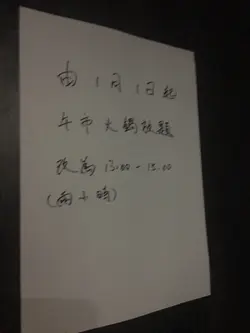 由1月1日起
午市火鍋放題
改為13:00-15:00
(兩小時)